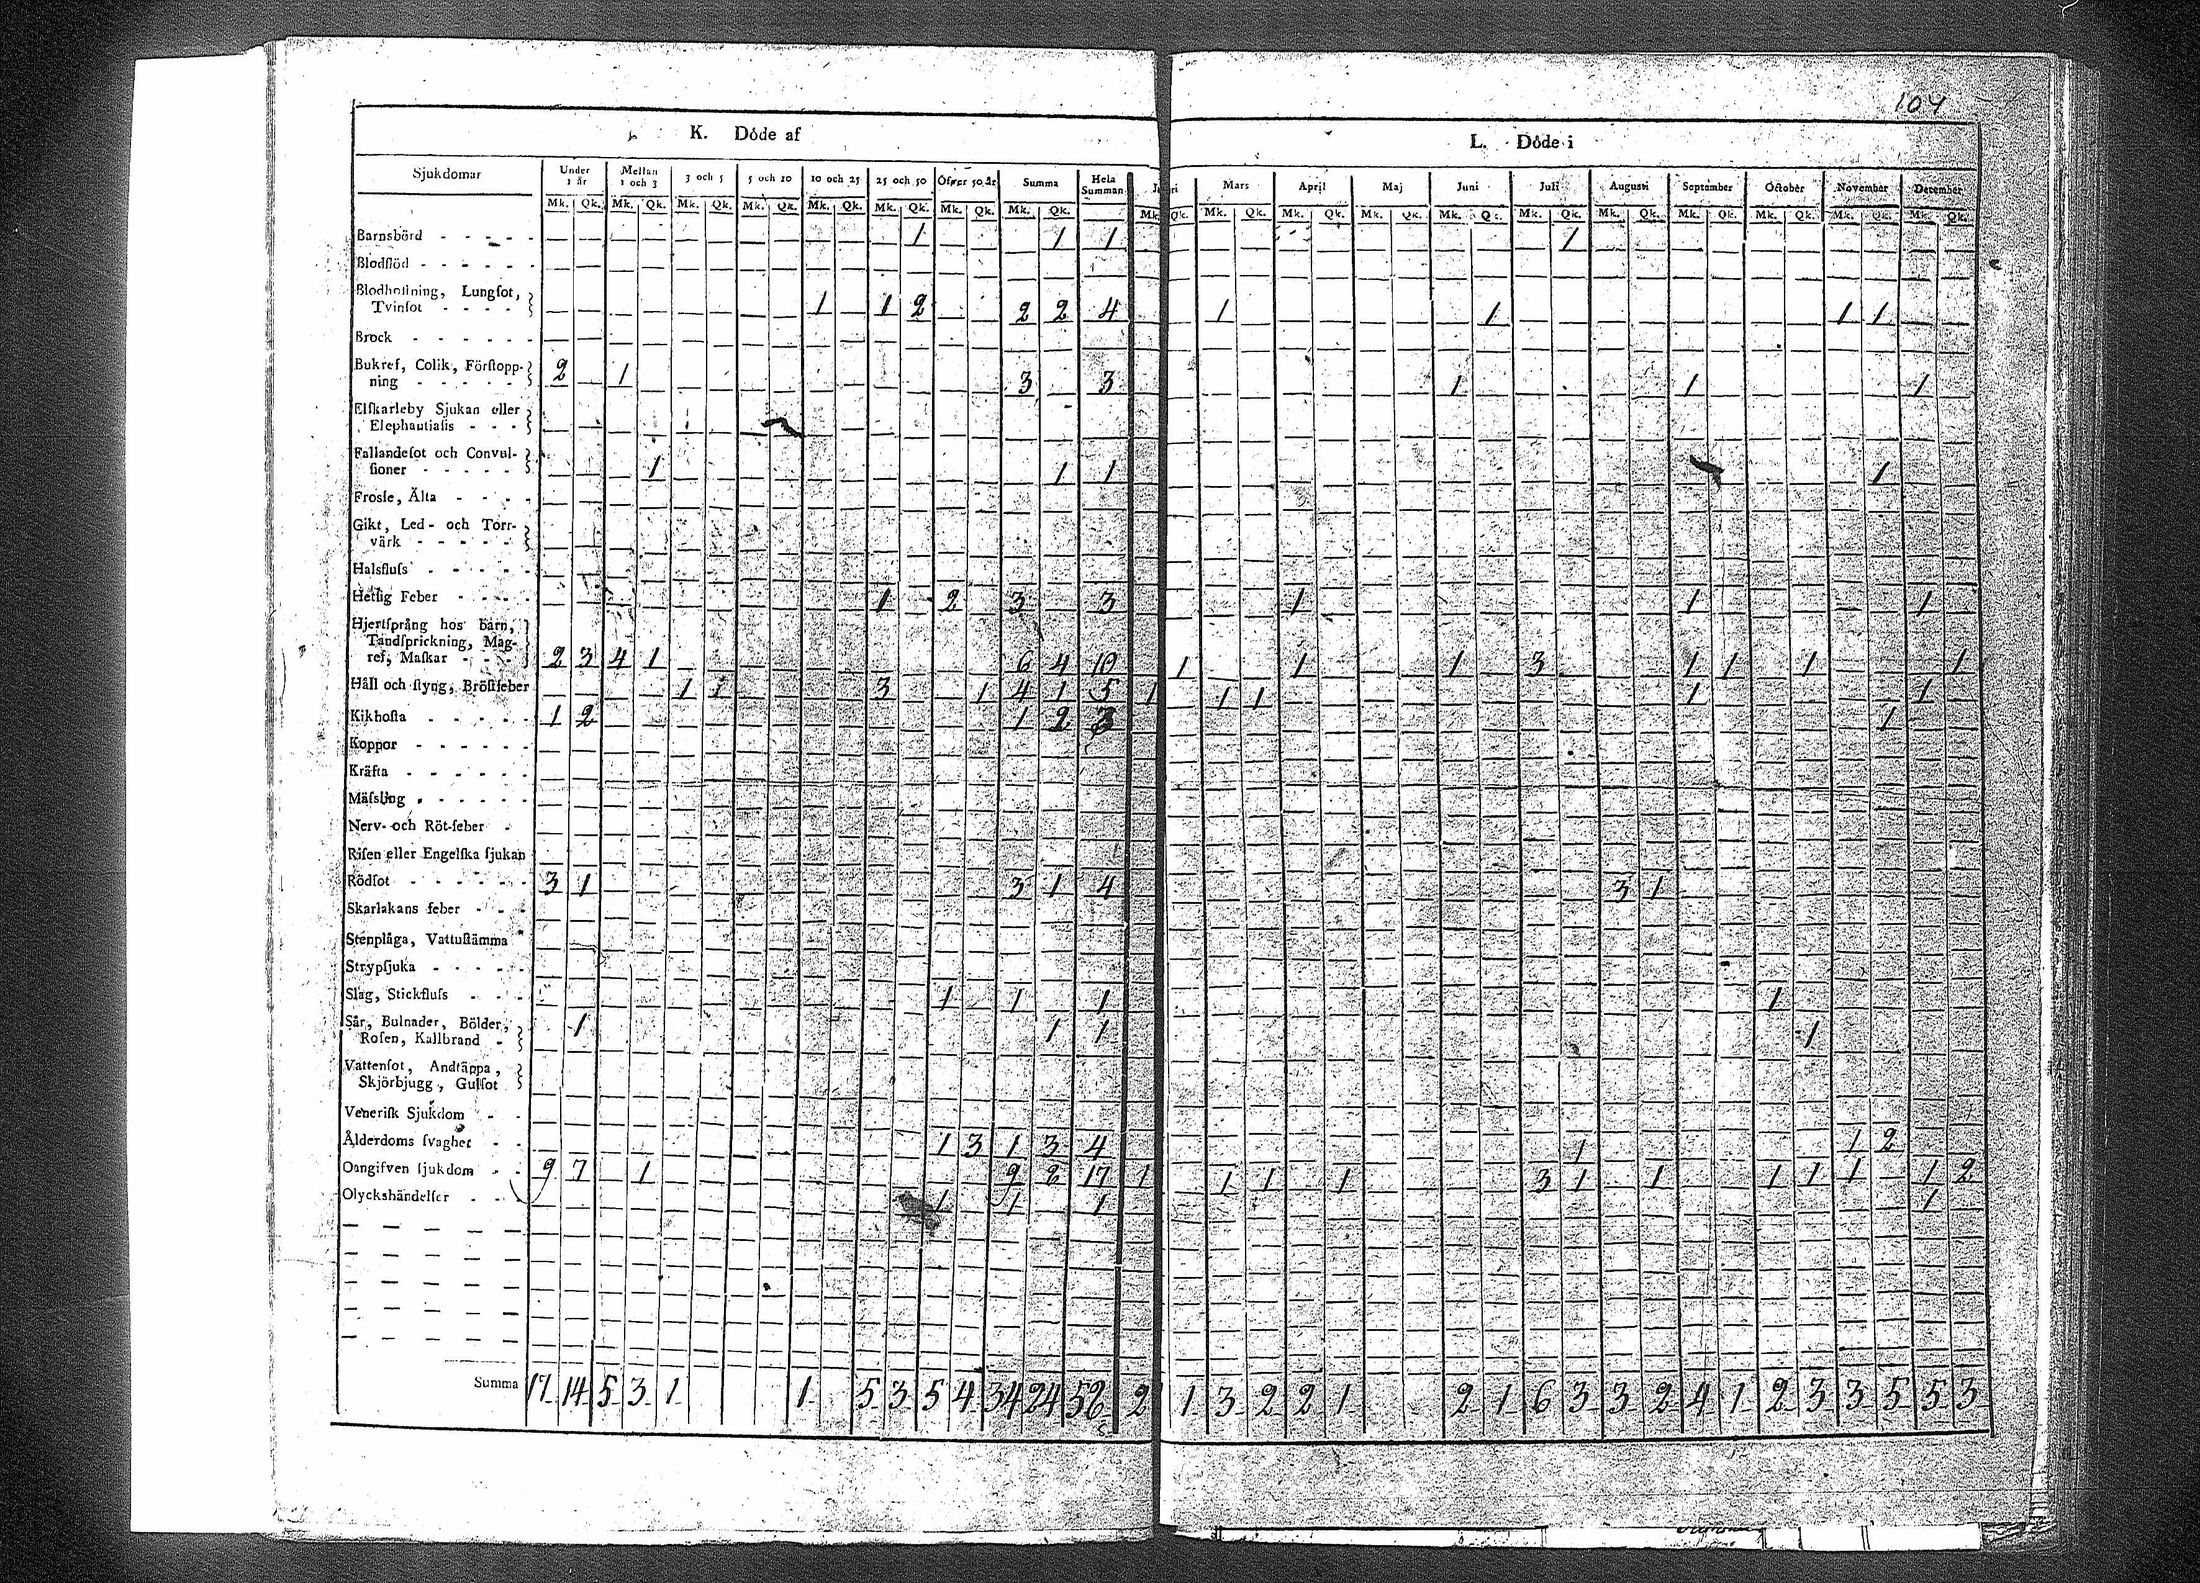 104
K. Döde af
L. Döde i
Sjukdomar Under 1 år Mellan 1 och 3 3 och 5 5 och 10 10 och 25 25 och 50 Öfver 50 år Summa Hela Summan Mars April Maj Juni Juli Augusti September October November December
Mk. Qk. Mk. Qk. Mk. Qk. Mk. Qk. Mk. Qk. Mk. Qk. Mk. Qk. Mk. Qk. Mk. Qk. Mk. Qk. Mk. Qk. Mk. Qk. Mk. Qk. Mk. Qk. Mk. Qk. Mk. Qk. Mk. Qk. Mk. Qk. Mk. Qk.
Barnsbörd - - - - - 1 1 1 1
Blodflöd - - - - - -
Blodhostning, Lungsot,
Tvinsot - - - - 1 1 2 2 2 4 1 1 1 1
Brock - - - - - -
Bukref, Colik, Förstopp-
ning - - - - - 2 1 3 3 1 1 1
Elfkarleby Sjukan eller
Elephantiasis - - -
Fallandesot och Convul-
sioner - - - - - 1 1 1 1
Frossa, Älta - - - -
Gikt, Led- och Torr-
värk - - - - -
Halsfluss - - - - -
Hetsig Feber - - - - 1 2 3 3 1 1 1
Hjertsprång hos barn,
Tandsprickning, Mag-
ref, Maskar - - - 2 3 4 1 6 4 10 1 1 1 3 1 1 1 1
Håll och styng, Bröstfeber 1 1 3 1 4 1 5 1 1 1 1 1
Kikhosta - - - - - 1 2 1 2 3 1
Koppor - - - - - -
Kräfta - - - - - -
Mässling - - - - - -
Nerv- och Röt-feber -
Risen eller Engelska sjukan
Rödsot - - - - - - 3 1 3 1 4 3 1
Skarlakans feber - - -
Stenplåga, Vattustämma
Strypsjuka - - - - -
Slag, Stickfluss - - - 1 1 1 1
Sår, Bulnader, Bölder,
Rosen, Kallbrand - 1 1 1 1
Vattensot, Andtäppa,
Skjörbjugg, Gulsot
Venerisk Sjukdom - -
Ålderdoms svaghet - - 1 3 1 3 4 1 1 2
Oangifven sjukdom - - 9 7 1 9 8 17 1 1 1 1 3 1 1 1 1 1 1 2
Olyckshändelser - - 1 1 1 1
Summa 17 14 5 3 1 1 5 3 5 4 34 24 58 2 1 3 2 2 1 2 1 6 3 3 2 4 1 2 3 3 5 5 3